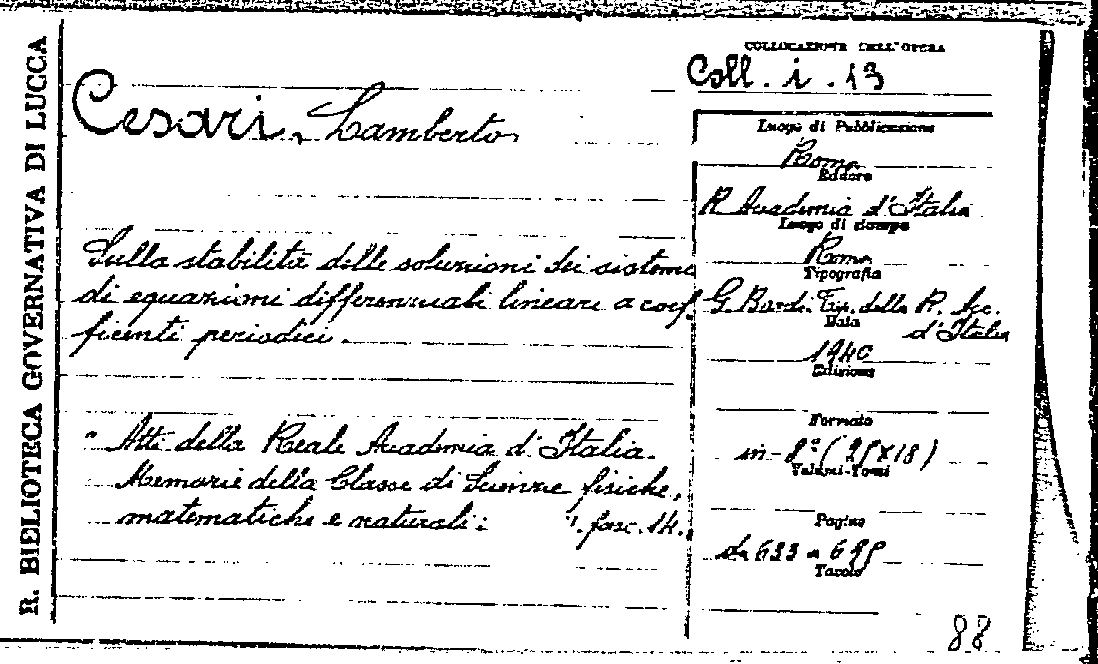 R. BIBLIOTECA GOVERNATIVA DI LUCCA
COLLOCAZIONE DELL'OPERA
Coll. i. 13
Cesari, Lamberto
Sulla stabilità delle soluzioni dei sistemi
di equazioni differenziali lineari a coef-
ficienti periodici.
" Atti della Reale Accademia d'Italia.
Memorie della Classe di Scienze fisiche,
matematiche e naturali: fasc. 14.
Luogo di Pubblicazione
Roma
Editore
R. Accademia d'Italia
Luogo di stampa
Roma
Tipografia
G. Bardi. Tip. della R. Acc.
d'Italia
Data
1940
Edizione
Formato
in-8° (25x18)
Volumi-Tomi
Pagine
da 633 a
Tavole
88